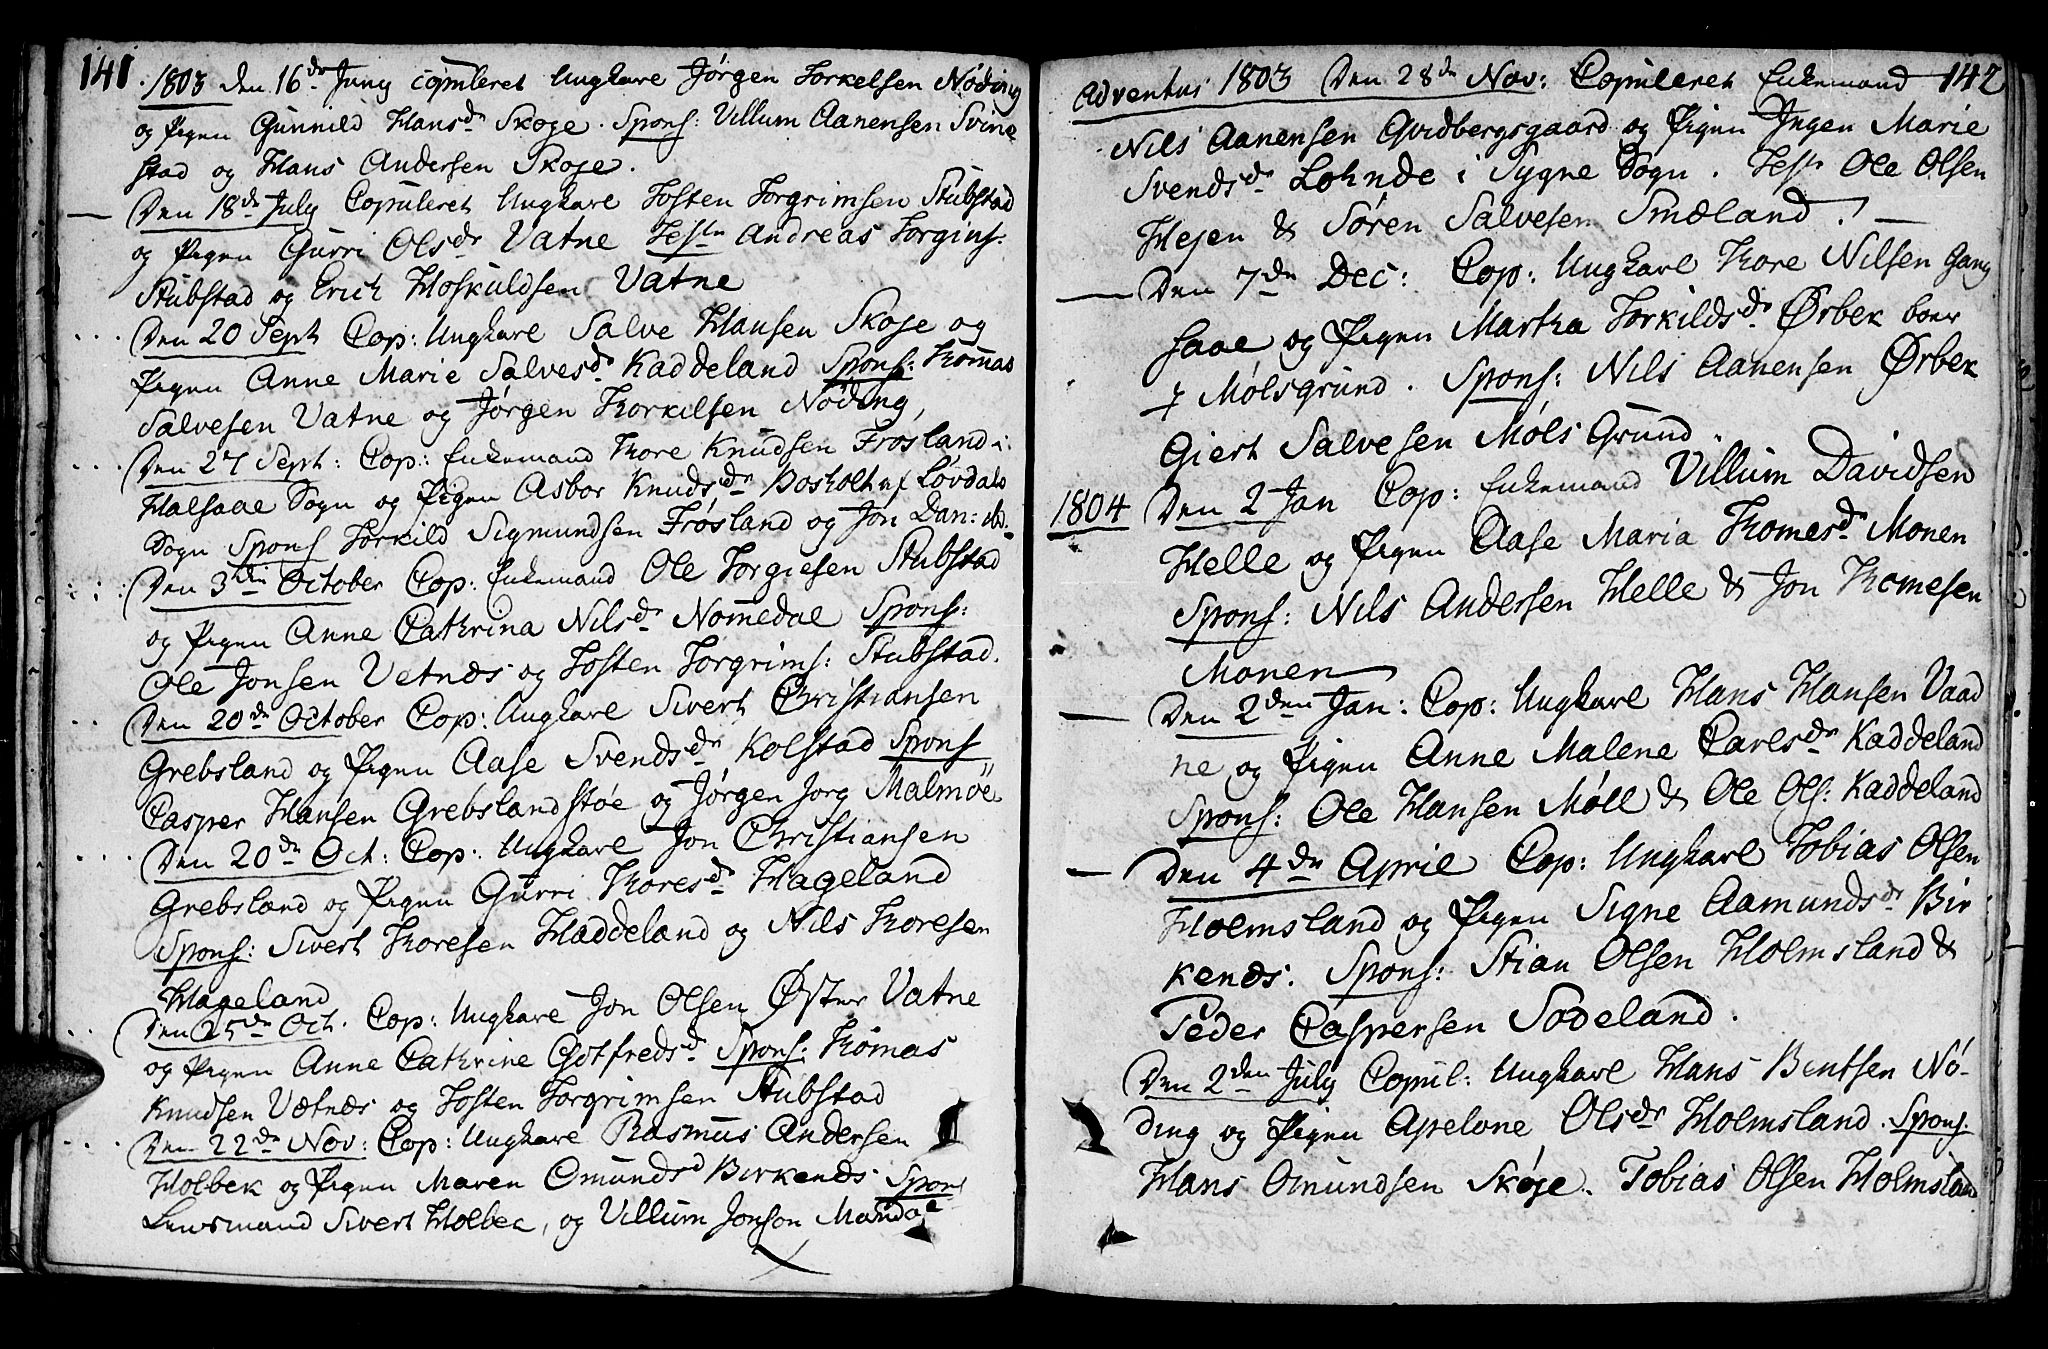 141. 1803 den 16de Juny copuleret Ungkare Jørgen Torkelsen Nøding
og Pigen Gunnild Hansdr Skøge. Spons: Villum Aanensen Svine
stad og Hans Andersen Skøge.
Den 18de July Copuleret Ungkare Tosten Torgrimsen Stubstad
og Pigen Gurri Olsdr Vatne Test Andreas Torgims:
Stubstad og Erich Hoskuldsen Vatne
Den 20 Sept Cop: Ungkare Salve Hansen Skøge og
Pigen Anne Marie Salvesdr Kaddeland Spons: Thomas
Salvesen Vatne og Jørgen Thorkilsen Nøding,
Den 27 Sept: Cop: Enkemand Thore Knudsen Frøsland i
Halsaae Sogn og Pigen Asbor Knudsdr Bosholt af Løvdals
Sogn Spons Torkild Sigmundsen Frøsland og Jon Dan: ibd.
Den 3die October Cop: Enkemand Ole Torgiesen Stubstad
og Pigen Anne Cathrina Nilsdr Nomedal Spons:
Ole Jonsen Vetnes og Tosten Torgrims: Stubstad.
Den 20de October Cop: Ungkare Sivert Christiansen
Grebsland og Pigen Aase Svendsdr Kolstad Spons
Casper Hansen Grebslandstøe og Jørgen Jorg Malmöe
Den 20de Oct: Cop: Ungkare Jon Christiansen
Grebsland og Pigen Gurri Thoresdr Hageland
Spons: Sivert Thoresen Haddeland og Nils Thoresen
Hageland
Den 25de Oct. Cop: Ungkare Jon Olsen Øster Vatne
og Pigen Anne Cathrine Gotfredsd Spons: Thomas
Knudsen Vetnes og Tosten Torgrimsen Stubstad
Den 22de Nov: Cop: Ungkare Rasmus Andersen
Holbek og Pigen Maren Omundsd Birkenes Spons
Lensmand Sivert Holbek, og Villum Jonson Mandal
Adventus 1803 Den 28de Nov: Copuleret Enkemand 142
Nils Aanensen Qvidbergsgaard og Pigen Ingen Marie
Svendsdr Lohnde i Sygne Sogn. Test Ole Olsen
Hejen & Søren Salvesen Smeland.
Den 7de Dec: Cop: Ungkarl Thore Nilsen Gang
saae og Pigen Martha Torkildsdr Ørbek boer
i Mølsgrund. Spons: Nils Aanensen Ørbek
Giert Salvesen Møls Grund.
1804 Den 2 Jan Cop: Enkemand Villum Davidsen
Helle og Pigen Aase Maria Thomesdr Monen
Spons: Nils Andersen Helle & Jon Thomesen
Monen
Den 2den Jan: Cop: Ungkare Hans Hansen Vaad
ne og Pigen Anne Malene Carlsdr Kaddeland
Spons: Ole Hansen Møll & Ole Ols: Kaddeland
Den 4de April Cop: Ungkarl Tobias Olsen
Holmsland og Pigen Signe Aamundsdr Bir
kenes. Spons: Stian Olsen Holmsland &
Peder Caspersen Sodeland.
Den 2den July Copul: Ungkarl Hans Bentsen Nø-
ding og Pigen Apelone Olsdr Holmsland. Spons.
Hans Omundsen Skøge. Tobias Olsen Holmsland